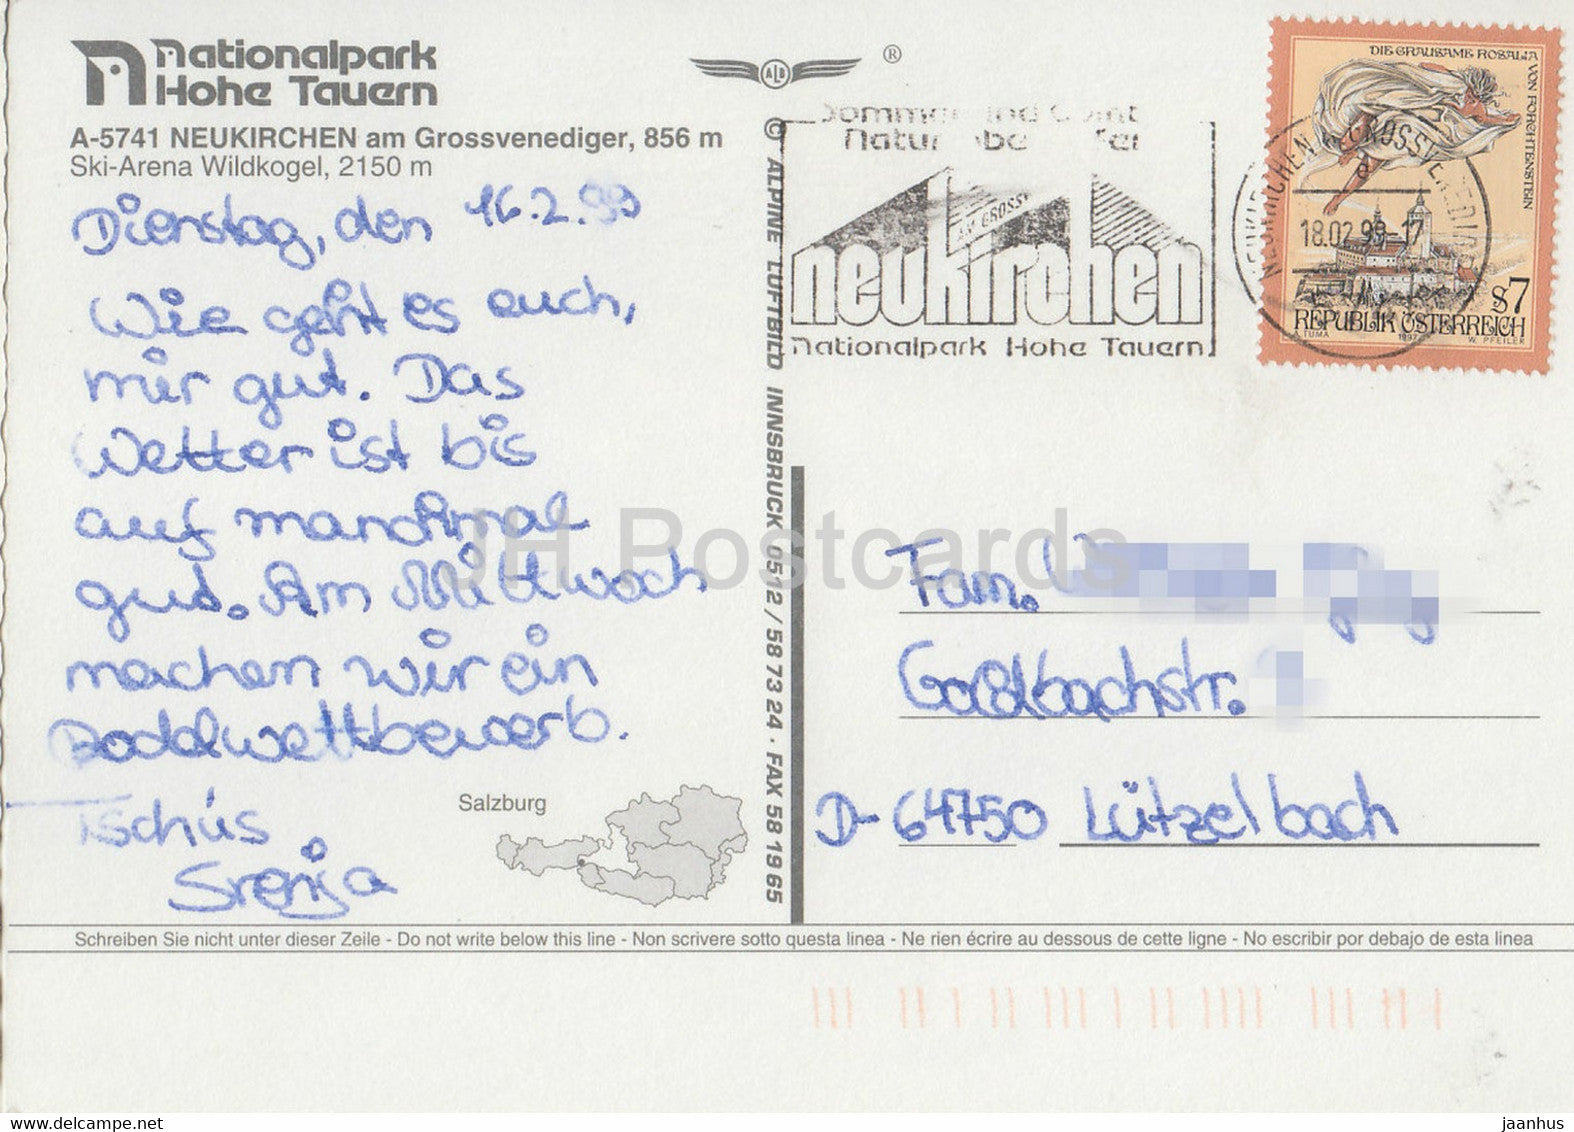 nationalpark
Hohe Tauern
A-5741 NEUKIRCHEN am Grossvenediger, 856 m
Ski-Arena Wildkogel, 2150 m
Dienstag, den 16.2.99
Wie geht es euch,
mir gut. Das
Wetter ist bis
auf manchmal
gut. Am Mittwoch
machen wir ein
Rodelwettbewerb.
Tschüs
Svenja
Salzburg
ALB
®
© ALPINE LUFTBILD INNSBRUCK 0512 / 58 73 24 · FAX 58 19 65
Sommer und
Natur
AM GROSSV
neukirchen
nationalpark Hohe Tauern
NEUKIRCHEN GROSSVENEDIGER
18.02.99-17
DIE GRAUSAME ROSALIA
VON FORCHTENSTEIN
S7
REPUBLIK ÖSTERREICH
A. TUMA 1997 W. PFEILER
Fam.
Goldbachstr.
D-64750 Lützelbach
Schreiben Sie nicht unter dieser Zeile - Do not write below this line - Non scrivere sotto questa linea - Ne rien écrire au dessous de cette ligne - No escribir por debajo de esta linea
JH Postcards
delcampe.net
jaanhus